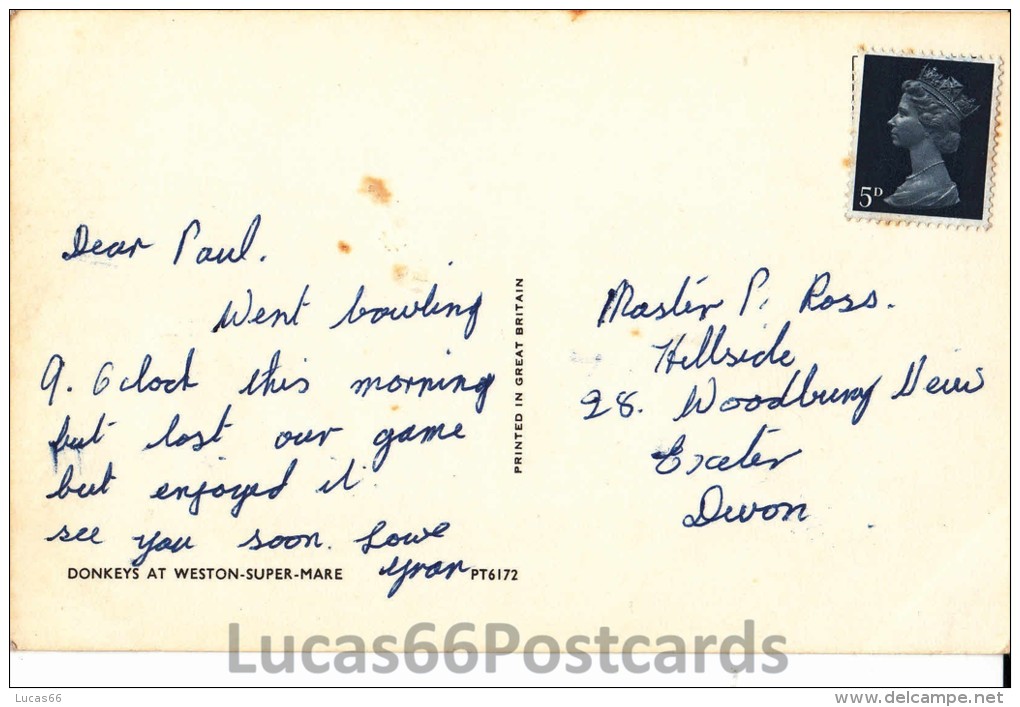 5D
Dear Paul.
Went bowling
9. O clock this morning
but lost our game
but enjoyed it
see you soon. Love
Gran
DONKEYS AT WESTON-SUPER-MARE
PT6172
PRINTED IN GREAT BRITAIN
Master P. Ross.
Hillside
28. Woodbury View
Exeter
Devon
Lucas66Postcards
Lucas66
www.delcampe.net